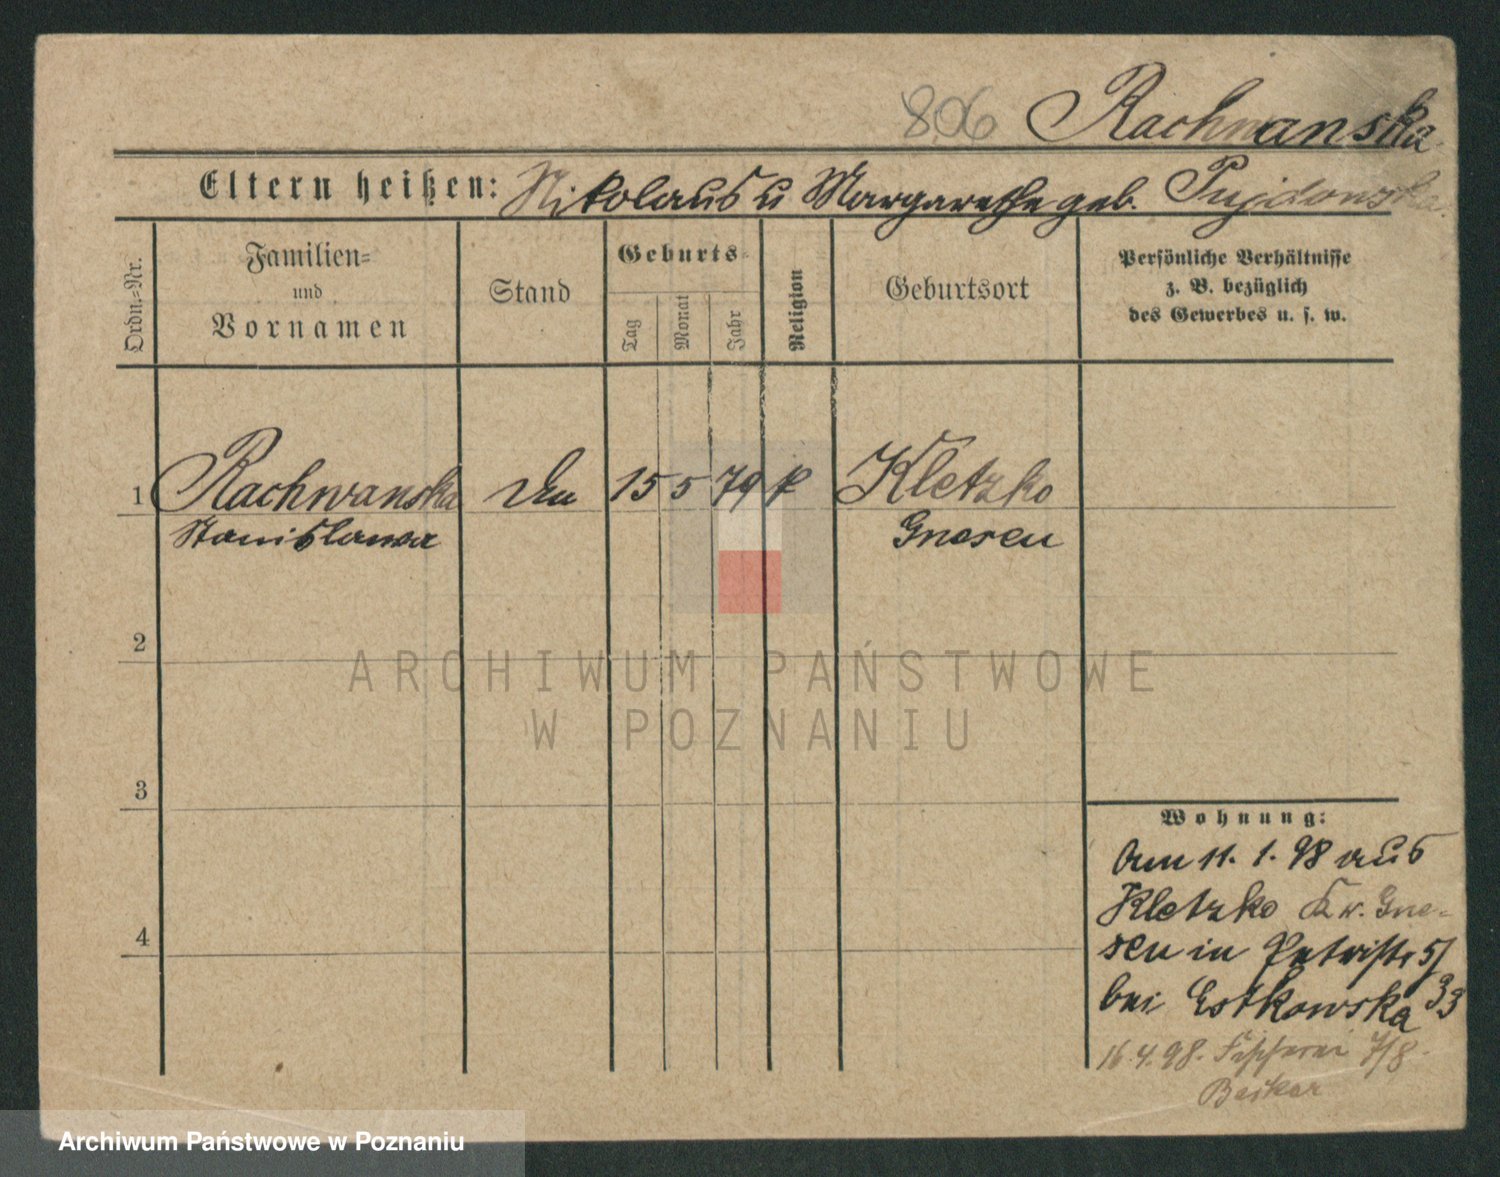 806 Rachwanska
Eltern heißen: Nikolaus u Margarethe geb. Pujdowska.
Ordn.=Nr.
Familien=
und
Vornamen
Stand
Geburts=
Tag
Monat
Jahr
Religion
Geburtsort
Persönliche Verhältnisse
z. B. bezüglich
des Gewerbes u. s. w.
1 Rachwanska 15 5 79 k Kletzko
Stanislawa Gnesen
2
3
4
ARCHIWUM PAŃSTWOWE
W POZNANIU
Wohnung:
Am 11. 1. 98 aus
Kletzko Kr. Gne-
sen in Petristr 5/
bei Estkowska 33
16.4.98. Fischerei 7/8.
Archiwum Państwowe w Poznaniu